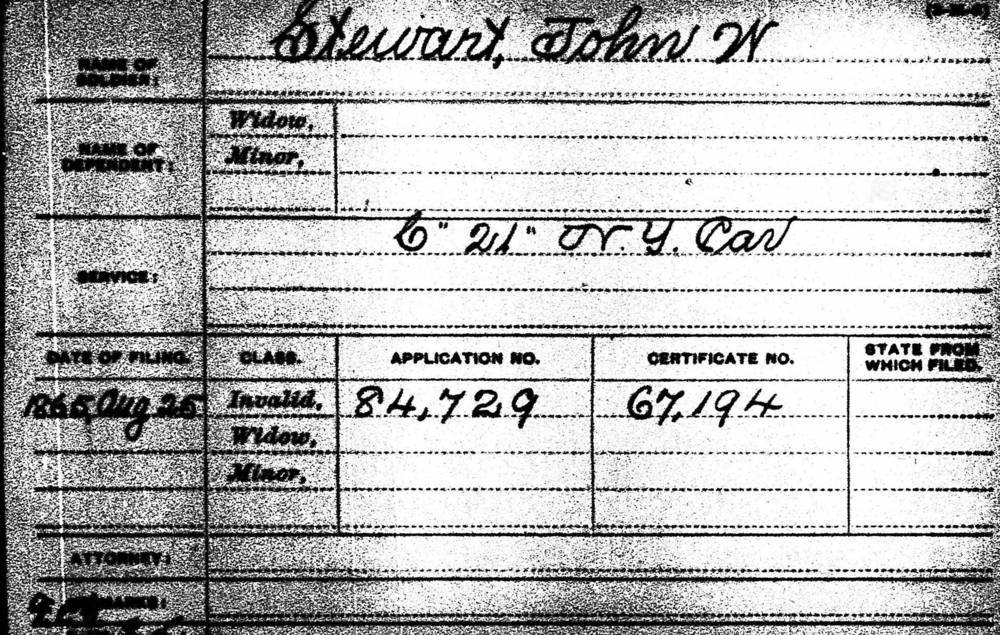 Stewart, John W
NAME OF
SOLDIER:
NAME OF
DEPENDENT:
Widow,
Minor,
SERVICE:
C" 21" N.Y. Cav
DATE OF FILING. CLASS. APPLICATION NO. CERTIFICATE NO. STATE FROM
WHICH FILED.
1865, Aug 25 Invalid, 84,729 67,194
Widow,
Minor,
ATTORNEY: